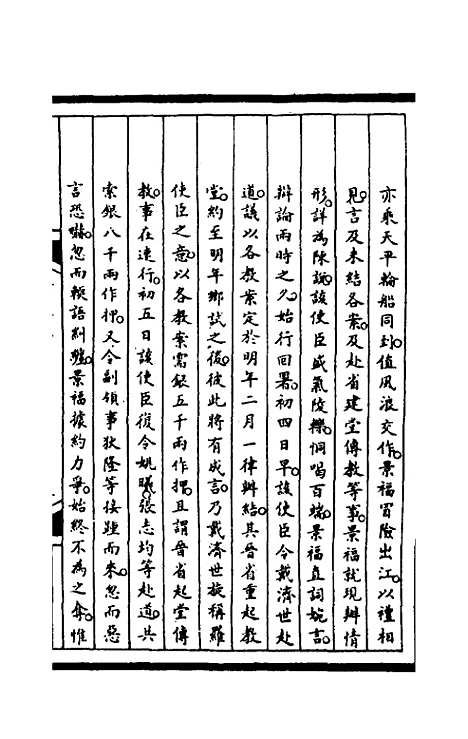 亦乘天平輪船同到值風浪交作景福冒險出江以禮相
見言及未結各案及赴省建堂傳教等事景福就現辦情
形詳為陳說該使臣盛氣陵轢恫喝百端景福直詞婉言
辯論兩時之久始行回署初四日早該使臣令戴濟世赴
道議以各教案定於明年二月一律辦結其晉省重起教
堂約至明年鄉試之後彼此將有成言乃戴濟世旋稱羅
使臣之意以各教案需銀五千兩作押且謂晉省起堂傳
教事在速行初五日該使臣復令姚曦張志均等赴道共
索銀八千兩作押又令副領事狄隆等接踵而來忽而惡
言恐嚇忽而輭語糾纏景福據約力爭始終不為之奪惟